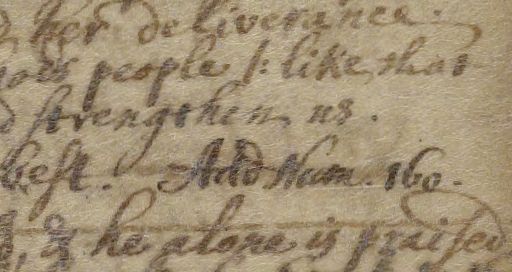 her deliverance.
people /: like that
strengthen us.
best. Add Num. 160.
, & he alone is praised